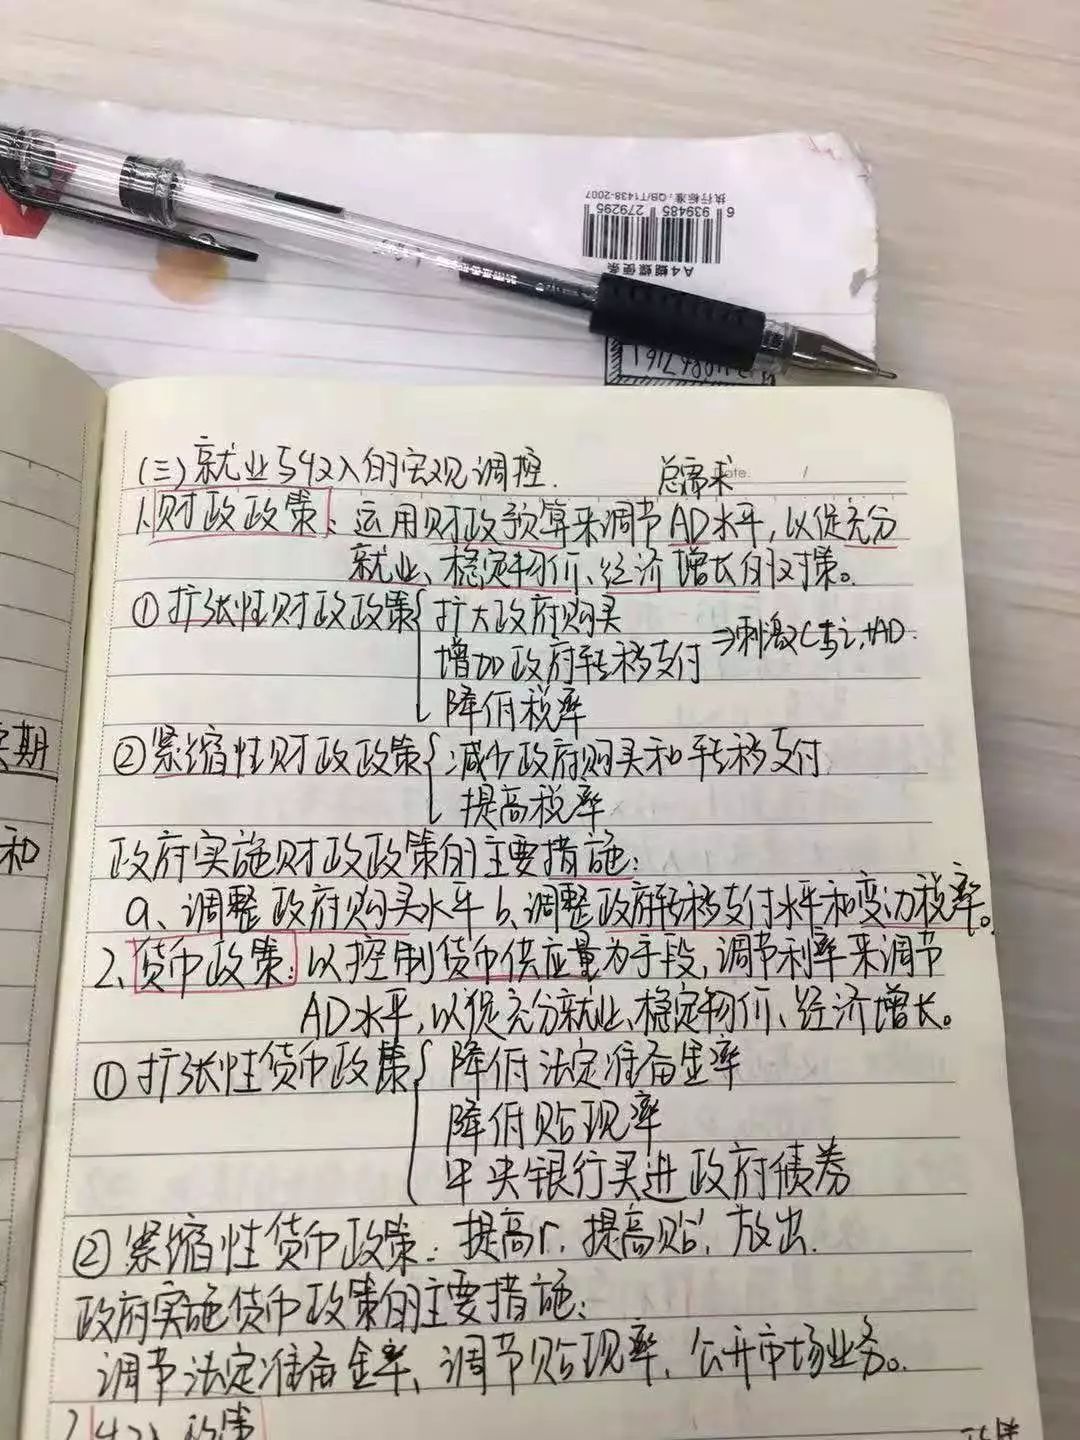 6 939485 279295
执行标准：QB/T1438-2007
A4蝴蝶便条
(三)就业与收入的宏观调控.
总需求
Date.
1.财政政策：运用财政预算来调节AD水平，以促充分
就业、稳定物价、经济增长的对策。
①扩张性财政政策{扩大政府购买
增加政府转移支付 ⇒刺激C与i,↑AD.
降低税率
②紧缩性财政政策{减少政府购买和转移支付
提高税率
政府实施财政政策的主要措施：
a、调整政府购买水平 b、调整政府转移支付水平和变动税率。
2、货币政策：以控制货币供应量为手段，调节利率来调节
AD水平，以促充分就业、稳定物价、经济增长。
①扩张性货币政策{降低法定准备金率
降低贴现率
中央银行买进政府债券
②紧缩性货币政策：提高r，提高贴，放出.
政府实施货币政策的主要措施：
调节法定准备金率、调节贴现率、公开市场业务。
期
和